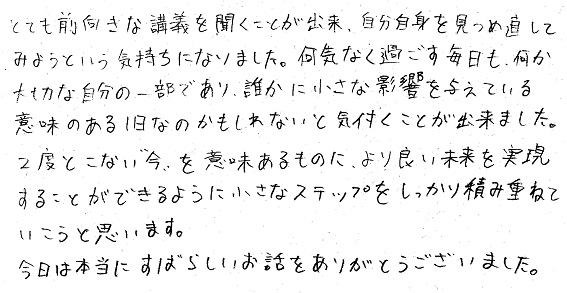 とても前向きな講義を聞くことが出来、自分自身を見つめ直して
みようという気持ちになりました。何気なく過ごす毎日も、何か
大切な自分の一部であり、誰かに小さな影響を与えている
意味のある1日なのかもしれないと気付くことが出来ました。
2度とこない“今、を意味あるものに、より良い未来を実現
することができるように小さなステップをしっかり積み重ねて
いこうと思います。
今日は本当にすばらしいお話をありがとうございました。